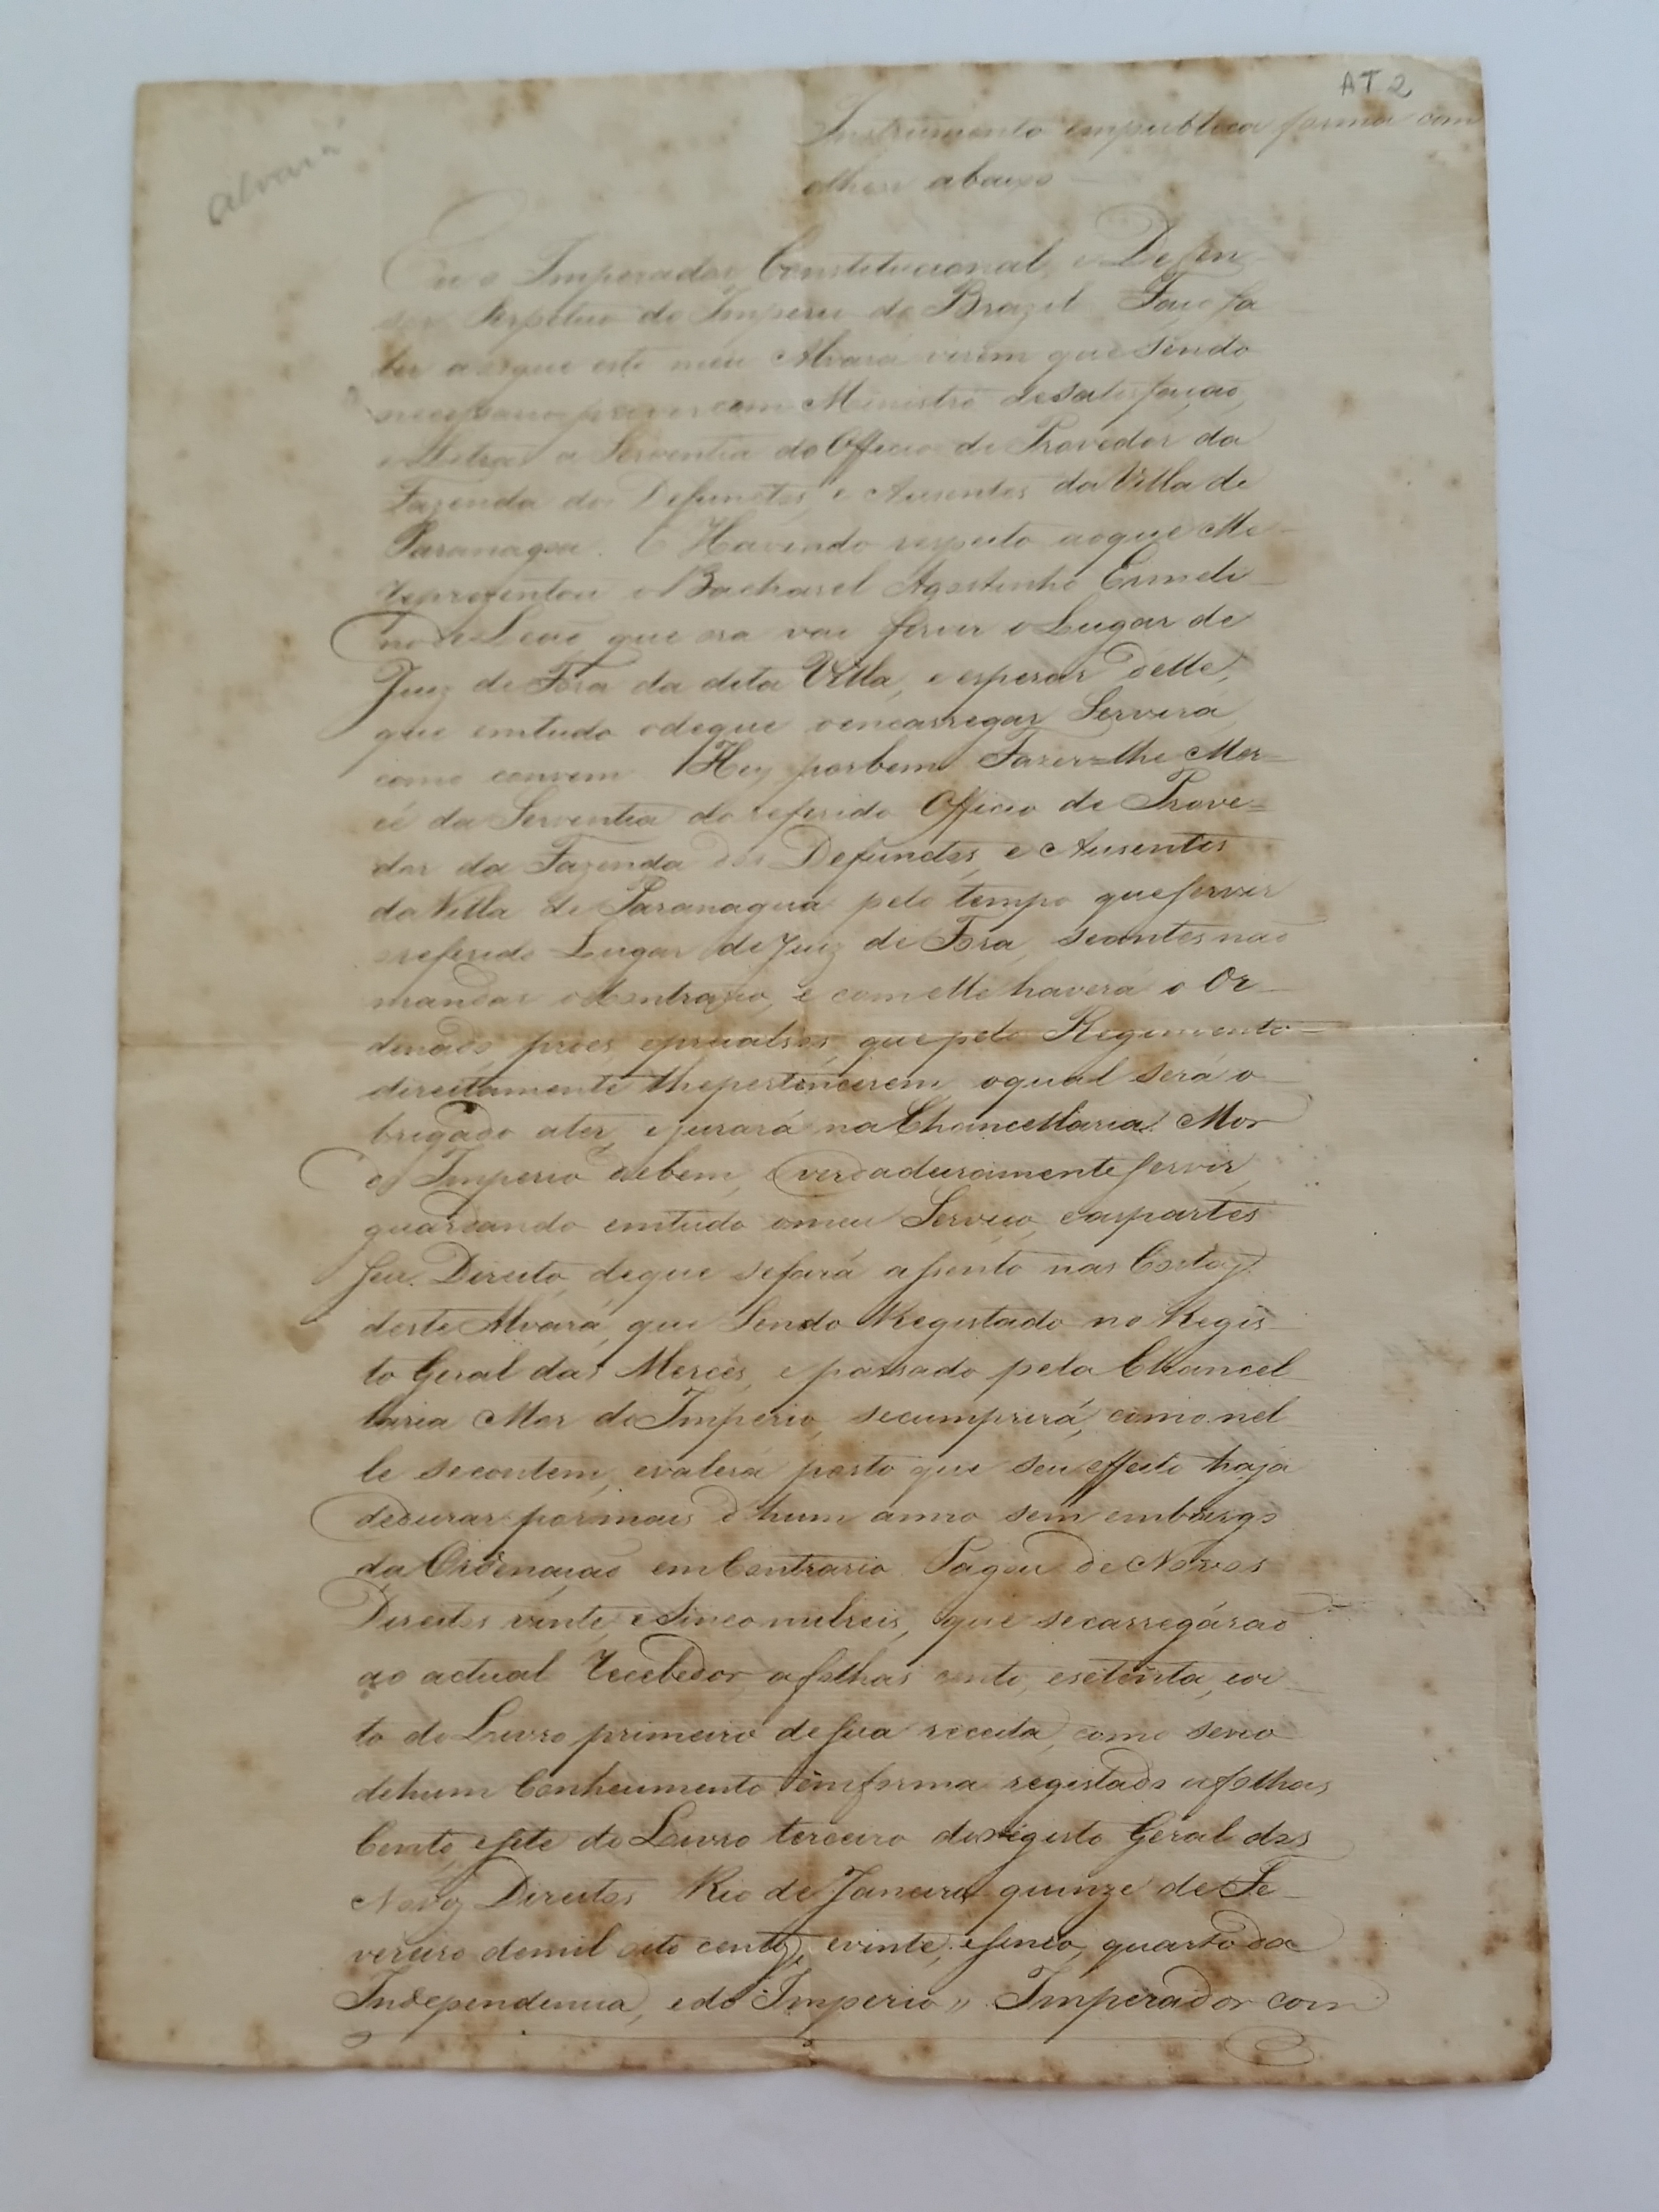 AT 2
alvará
Instrumento empublica forma com
otheor abaixo
Eu o Imperador Constitucional, e Defen-
sor Perpetuo do Imperio do Brazil. Faço sa
ber aosque este meu Alvará virem que sendo
necessario prover com Ministro desatisfação,
e Letras a Serventia do Officio de Provedor da
Fazenda dos Defunctos, e Ausentes da Villa de
Paranagoa. E Havendo respeito aoque Me
reprezentou o Bacharel Agostinho Ermeli-
no de Leaõ que ora vai servir o Lugar de
Juiz de Fora da dita Villa, e esperar delle,
que emtudo odeque oencarregar Servirá
como convem. Hey porbem Fazer=lhe Mer=
cê da Serventia do referido Officio de Prove=
dor da Fazenda dos Defunctos, e Ausentes
da Villa de Paranaguá pelo tempo queservir
oreferido Lugar de Juiz de Fora, seantes naõ
mandar oContrario, e comelle haverá o Or-
denado, proes, eprecalsos, quepelo Regimento
direitamente lhepertencerem, oqual será o
brigado ater, e jurará na Chancellaria Mor
do Imperio debem, e verdadeiramente servir,
guardando emtudo omeu Serviço, easpartes
seu Direito, deque sefará assento nas Costas
deste Alvará, que Sendo Registado no Regis-
to Geral das Mercês, e passado pela Chancel-
laria Mor do Imperio, secumprirá, como nel-
le secontem, evalerá posto que seu effeito haja
dedurar pormais d'hum anno sem embargo
da Ordenaçaõ em Contrario. Pagou de Novos
Direitos vinte, eSinco milreis, que secarregáraõ
ao actual Recebedor afolhas cento, esetenta, eoi-
to do Livro primeiro desua receita, como sevio
dehum Conhecimento emforma registado afolhas
Cento, esete do Livro terceiro doregisto Geral dos
Novos Direitos. Rio de Janeiro quinze de Fe-
vereiro demil oito centos, evinte, esinco, quarto da
Independencia, edo Imperio, Imperador com